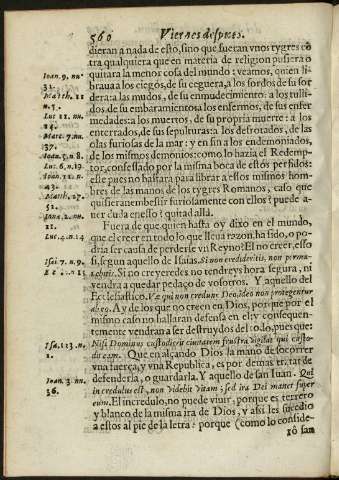 560 Viernes despues.
dieran a nada de esto, sino que fueran vnos tygres cõ
tra qualquiera que en materia de religion pusiera o
quitara la menor cosa del mundo: veamos, quien li-
braua a los ciegos, de su ceguera, a los sordos de su sor
dera: a las mudos, de su enmudecimiento: a los tulli-
dos de su embaramiento: a los enfermos, de sus enfer
medades: a los muertos, de su propria muerte: a los
enterrados, de sus sepulturas: a los derrotados, de las
olas furiosas de la mar: y en fin a los endemoniados,
de los mismos demonios: como lo hazia el Redemp-
tor, confessado por la misma boca de estos perfidos:
elle pues no bastara para librar a essos mismos hom-
bres de las manos de los tygres Romanos, caso que
quisieran embestir furiosamente con ellos? puede a-
uer duda en esso? quita d allá.
Fuera de que, quien hasta oy dixo en el mundo,
que el creer en todo lo que lleua razon, ha sido, o po
dria ser causa de perderse vn Reyno? El no creer, esso
si, segun aquello de Isaias. Si non credideritis, non perma-
nebitis. Si no creyeredes no tendreys hora segura, ni
vendra a quedar pedaço de vosotros. Y aquello del
Ecclesiastico. Væ qui non credunt Deo, ideo non protegentur
ab eo. Ay de los que no creen en Dios, porque por el
mismo caso no hallaran defensa en el: y consequen-
temente vendran a ser destruydos del todo, pues que:
Nisi Dominus custodierit ciuitatem frustra vigilat qui custo-
dit eam. Que en alçando Dios la mano de socorrer
vna fuerça, y vna Republica, es por demas tratar de
defenderla, o guardarla. Y aquello de san Iuan. Qui
incredulus est, non videbit vitam; sed ira Dei manet super
eum. El incredulo, no puede viuir, porque es terrero
y blanco de la misma ira de Dios, y assi les sucedio
a estos al pie de la letra: porque (como lo conside-
rô san
Ioan. 9. nu.
31.
Matth. 11
n. 5.
Luc 11. nu.
14.
Marc. 7. nu.
37.
Ioan. 5. n 8.
Luc. 6. n. 19
Ioan. 12. n.
43.
Matth. 27.
52.
21.
Luc. 4. n. 14
Isai. 7. n. 9.
n. 15
1.
Ioan. 3. nu.
36.